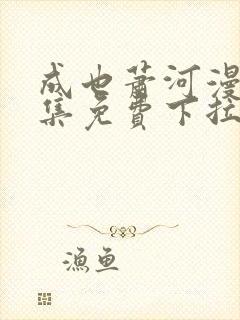 成也萧河漫
集免費下拉
漁魚